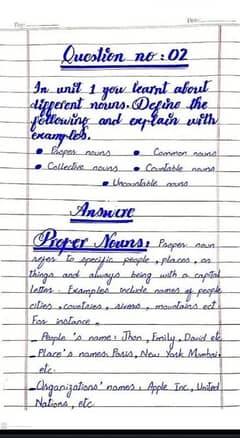 Day:
Date:
Question no: 02
In unit 1 you learnt about
different nouns. Define the
following and explain with
examples.
• Proper nouns • Common nouns
• Collective nouns • Countable nouns
• Uncountable nouns
Answere
Proper Nouns: Proper noun
refer to specific people, places, or
things and always being with a capital
letter. Examples include names of people
cities, countries, rivers, mountains ect.
For instance.
_ People's name: Jhon, Emily, David etc
_ Place's names: Paris, New York Mumbai,
etc.
_ Organizations' names: Apple Inc, United
Nations, etc